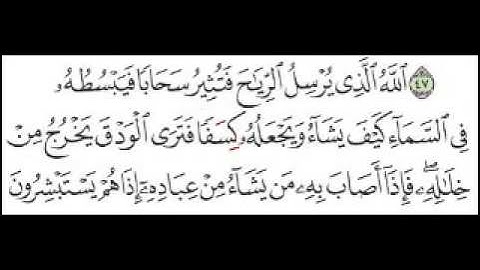 ﴿٤٧﴾ ٱللَّهُ ٱلَّذِى يُرْسِلُ ٱلرِّيَـٰحَ فَتُثِيرُ سَحَابًا فَيَبْسُطُهُۥ
فِى ٱلسَّمَآءِ كَيْفَ يَشَآءُ وَيَجْعَلُهُۥ كِسَفًا فَتَرَى ٱلْوَدْقَ يَخْرُجُ مِنْ
خِلَـٰلِهِۦ ۖ فَإِذَآ أَصَابَ بِهِۦ مَن يَشَآءُ مِنْ عِبَادِهِۦٓ إِذَا هُمْ يَسْتَبْشِرُونَ